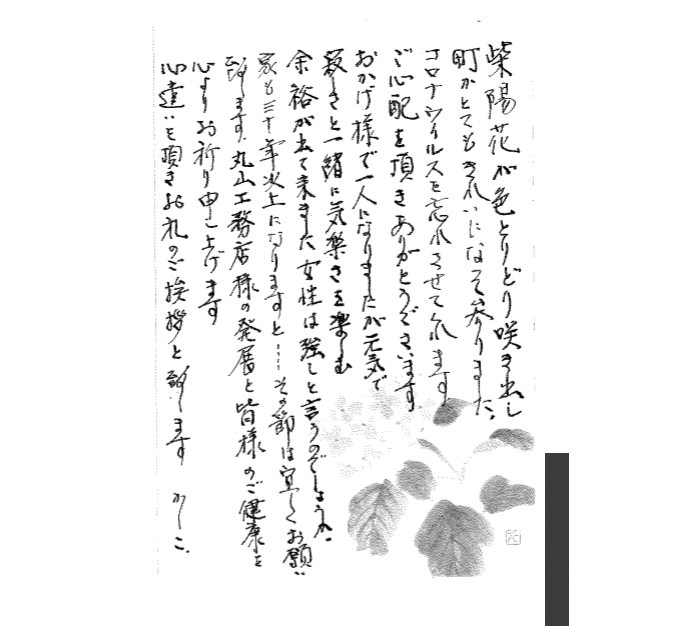 柴陽花が色とりどり咲き出し
町がとてもきれいになって参りました。
コロナウイルスを忘れさせてくれます
ご心配を頂きありがとうございます
おかげ様で一人になりましたが元気で
寂しさと一緒に気楽さを楽しむ
余裕が出て来ました女性は強しと言うのでしょうか。
家も三十年以上になりますと…その節は宜しくお願い
致します。丸山工務店様の発展と皆様のご健康を
心よりお祈り申し上げます
心遣いを頂きお礼のご挨拶と致します かしこ.